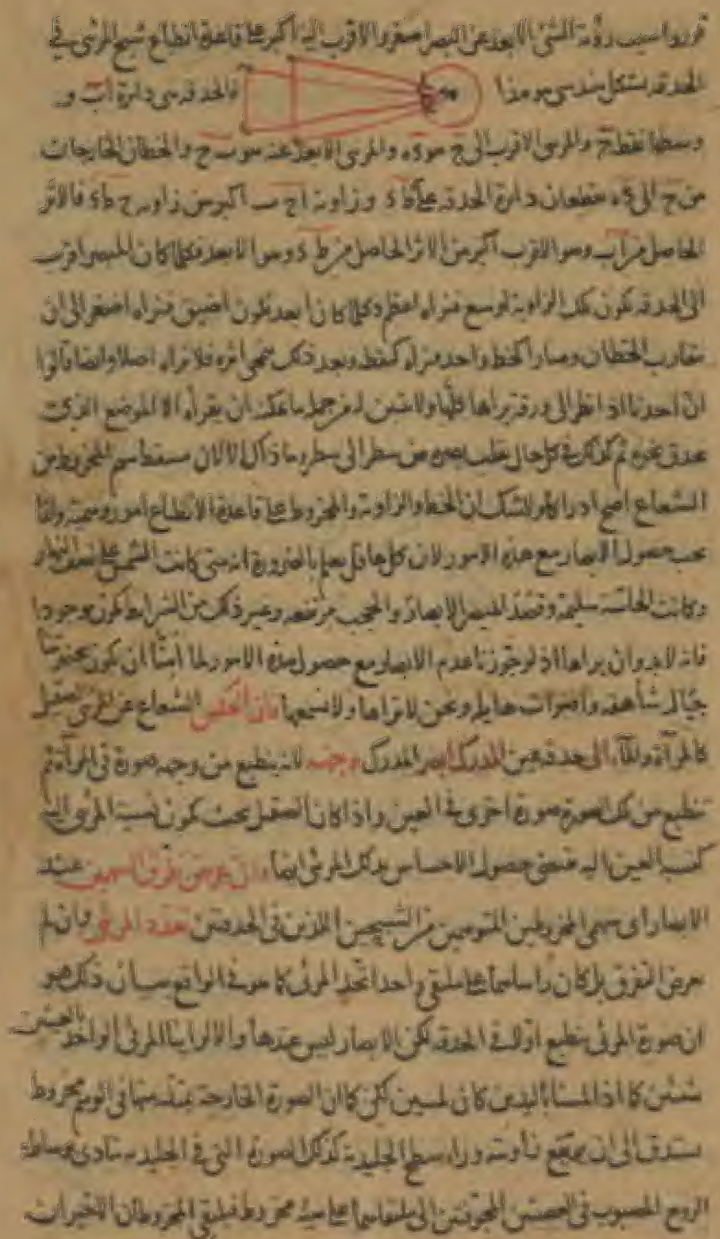 قرروا سبب رؤية الشئ الابعد عن البصر اصغر والاقرب اليه اكبر على قاعدة انطباع شبح المرئى فى
الحدقة بشكل هندسى هو هذا فالحدقة هى دائرة اب و
وسطها نقطة ح والمرئى الاقرب الى ح هو والمرئى الابعد عنه هو ح والخطان الخارجان
من ح الى يقطعان دائرة الحدقة على وزاوية اح ب اكبر من زاوية ح فالاثر
الحاصل من اب وهو الاقرب اكبر من الاثر الحاصل من ط وهو الابعد فكلما كان المبصر اقرب
الى الحدقة تكون تلك الزاوية اوسع فنراه اعظم وكلما كان ابعد تكون اضيق فنراه اصغر الى ان
يتقارب الخطان وصارا كخط واحد فنراه كنقطة وبعد ذلك ينمحى اثره فلا نراه اصلا وايضا قالوا
ان احدنا اذا نظر الى ورقة يراها كلها ولا يتبين له من جملة ما يمكنه ان يقرأه الا الموضع الذى
يحدق نحوه ثم كذلك فى كل حال يقلب بصره من سطر الى سطر وما ذاك الا لان مسقط سهم المخروط من
الشعاع اصح ادراكا ولا شك ان الخط والزاوية والمخروط على قاعدة الانطباع امور وهمية وانما
يجب حصول الابصار مع هذه الامور لان كل عاقل يعلم بالضرورة انه متى كانت الشمس على نصف النهار
وكانت الحاسة سليمة وقصد المبصر الابصار والحجب مرتفعة وغير ذلك من الشرايط يكون موجودا
فانه لابد وان يراها اذ لو جوزنا عدم الابصار مع حصول هذه الامور لما امنا ان يكون بحضرتنا
جبال شاهقة واصوات هايلة ونحن لا نراها ولا نسمعها فان انعكس الشعاع عن المرئى الصقيل
كالمرآة والماء الى حدقة عين المدرك ابصر المدرك وجهه لانه ينطبع من وجهه صورة فى المرآة ثم
تنطبع من تلك الصورة صورة اخرى فى العين واذا كان الصقيل بحيث يكون نسبة المرئى اليه
كنسبة العين اليه فيقتضى حصول الاحساس بذلك المرئى ايضا وان عرض تفرق السهمين عند
الابصار اى سهمى المخروطين المتوهمين من الشبحين اللذين فى الحدقتين تعدد المرئى وان لم
يعرض التفرق بل كان راساهما على ملتقى واحد اتحد المرئى كما هو فى الواقع وبيان ذلك هو
ان صورة المرئى ينطبع اولا فى الحدقة لكن الابصار ليس عندها والا لراينا المرئى الواحد بالعينين
شيئين كما اذا لمسنا باليدين كان لمسين لكن كما ان الصورة الخارجة يمتد منها فى الوهم مخروط
يستدق الى ان يوقع زاويته وراء سطح الجليدية كذلك الصورة التى فى الجليدية تتادى بوساطة
الروح المصبوب فى العصبتين المجوفتين الى ملتقاهما على هيئة مخروط فيلتقى المخروطان الاخيران